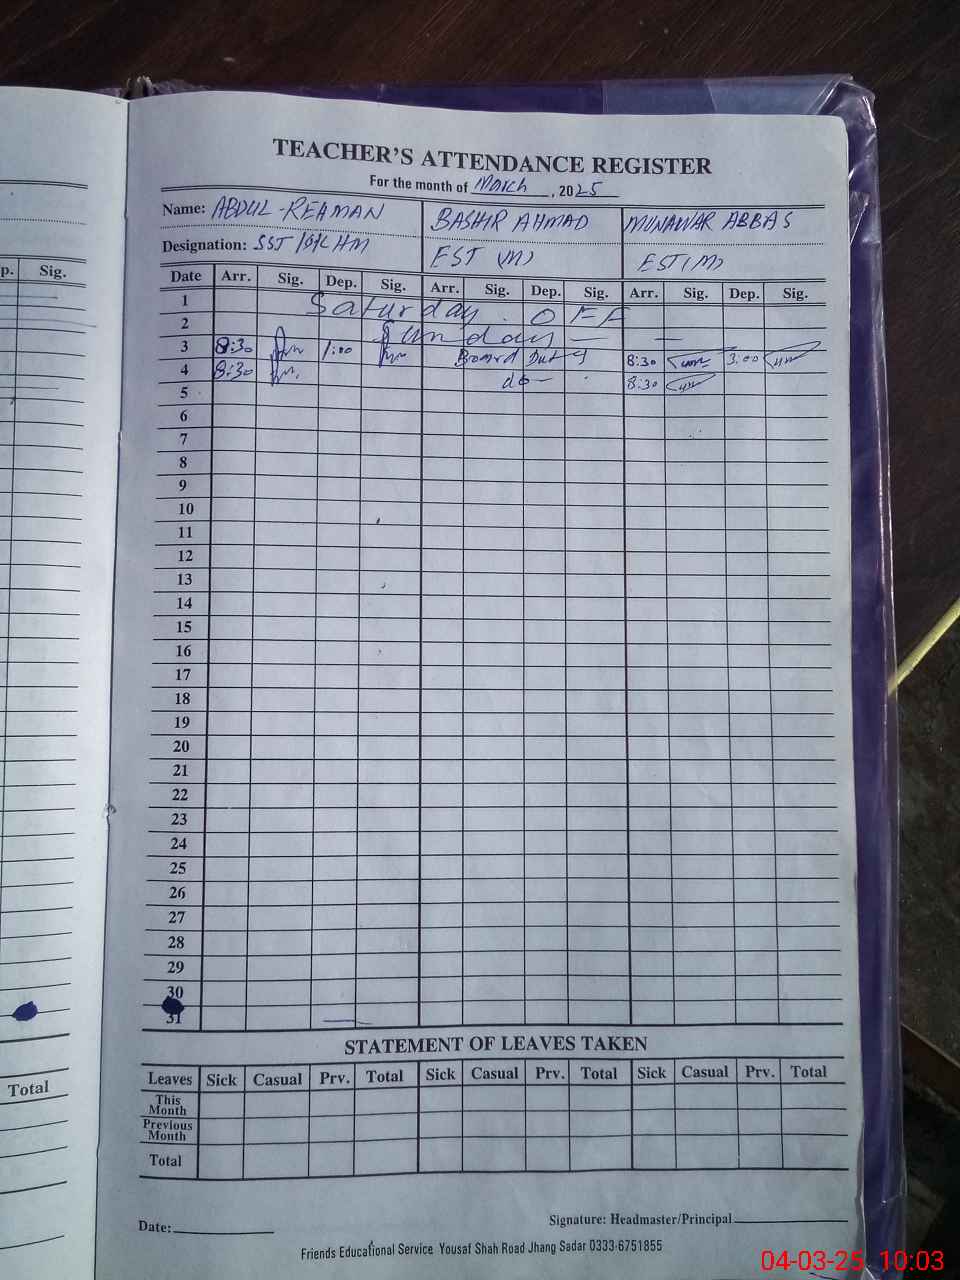 TEACHER'S ATTENDANCE REGISTER
For the month of March, 2025
Name: ABDUL-REAMAN BASHIR AHMAD MUNAWAR ABBAS
Designation: SST I/C HM EST (M) EST (M)
p. Sig.
Date Arr. Sig. Dep. Sig. Arr. Sig. Dep. Sig. Arr. Sig. Dep. Sig.
1 Saturday OFF
2 Sunday
3 8:30 1:00 Board Duty 8:30 3:00
4 8:30 do 8:30
5
6
7
8
9
10
11
12
13
14
15
16
17
18
19
20
21
22
23
24
25
26
27
28
29
30
31
STATEMENT OF LEAVES TAKEN
Total
Leaves Sick Casual Prv. Total Sick Casual Prv. Total Sick Casual Prv. Total
This Month
Previous Month
Total
Date:
Signature: Headmaster/Principal
Friends Educational Service Yousaf Shah Road Jhang Sadar 0333-6751855
04-03-25 10:03